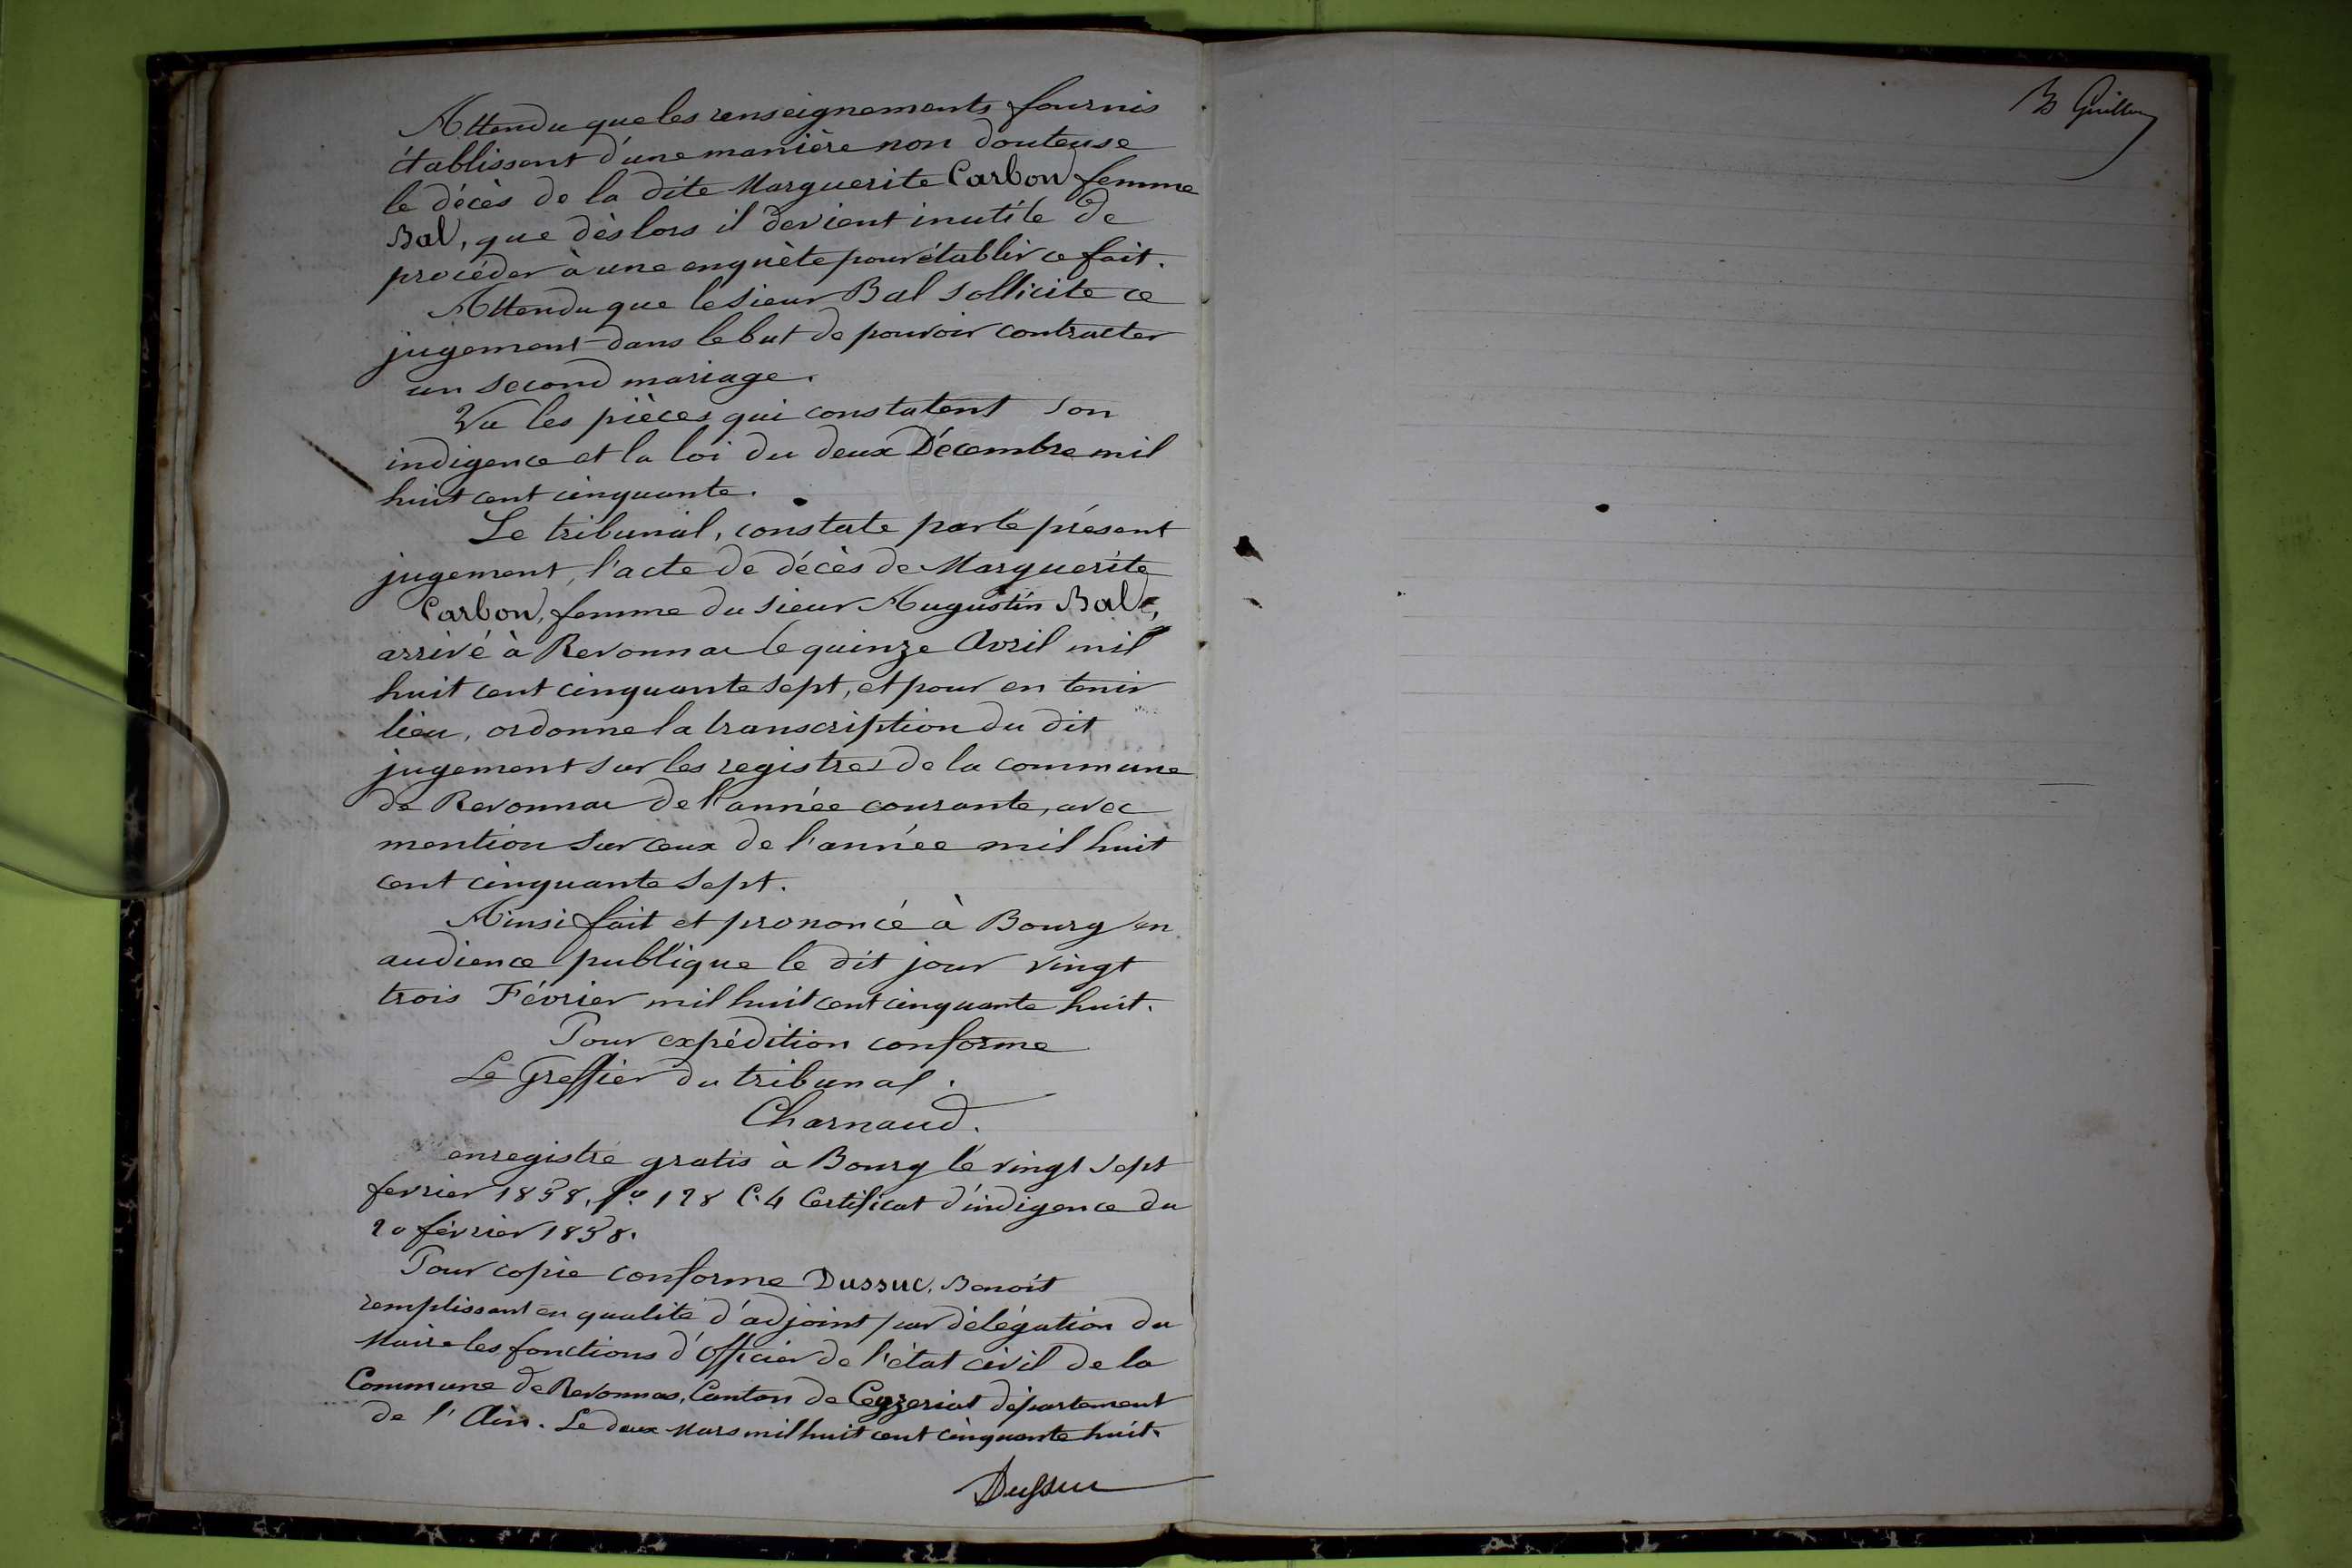 Attendu que les renseignements fournis
établissent d'une manière non douteuse
le décès de la dite Marguerite Carbon femme
Bal, que dès lors il devient inutile de
procéder à une enquète pour établir ce fait.
Attendu que le sieur Bal sollicite ce
jugement dans le but de pouvoir contracter
un second mariage.
Vu les pièces qui constatent son
indigence et la loi du deux Décembre mil
huit cent cinquante.
Le tribunal, constate par le présent
jugement, l'acte de décès de Marguerite
Carbon, femme du sieur Augustin Bal,
arrivé à Revonnas le quinze Avril mil
huit cent cinquante sept, et pour en tenir
lieu, ordonne la transcription du dit
jugement sur les registres de la commune
de Revonnas de l'année courante, avec
mention sur ceux de l'année mil huit
cent cinquante sept.
Ainsi fait et prononcé à Bourg en
audience publique le dit jour vingt
trois Février mil huit cent cinquante huit.
Pour expédition conforme
Le Greffier du tribunal.
Charnaud.
enregistré gratis à Bourg le vingt sept
fevrier 1858, fo 128 C. 4 Certificat d'indigence du
20 février 1858.
Pour copie conforme Dussuc, Benoit
remplissant en qualité d'adjoint par délégation du
Maire les fonctions d'Officier de l'état civil de la
Commune de Revonnas, Canton de Ceyzeriat département
de l'Ain. Le deux Mars mil huit cent cinquante huit.
Dussuc